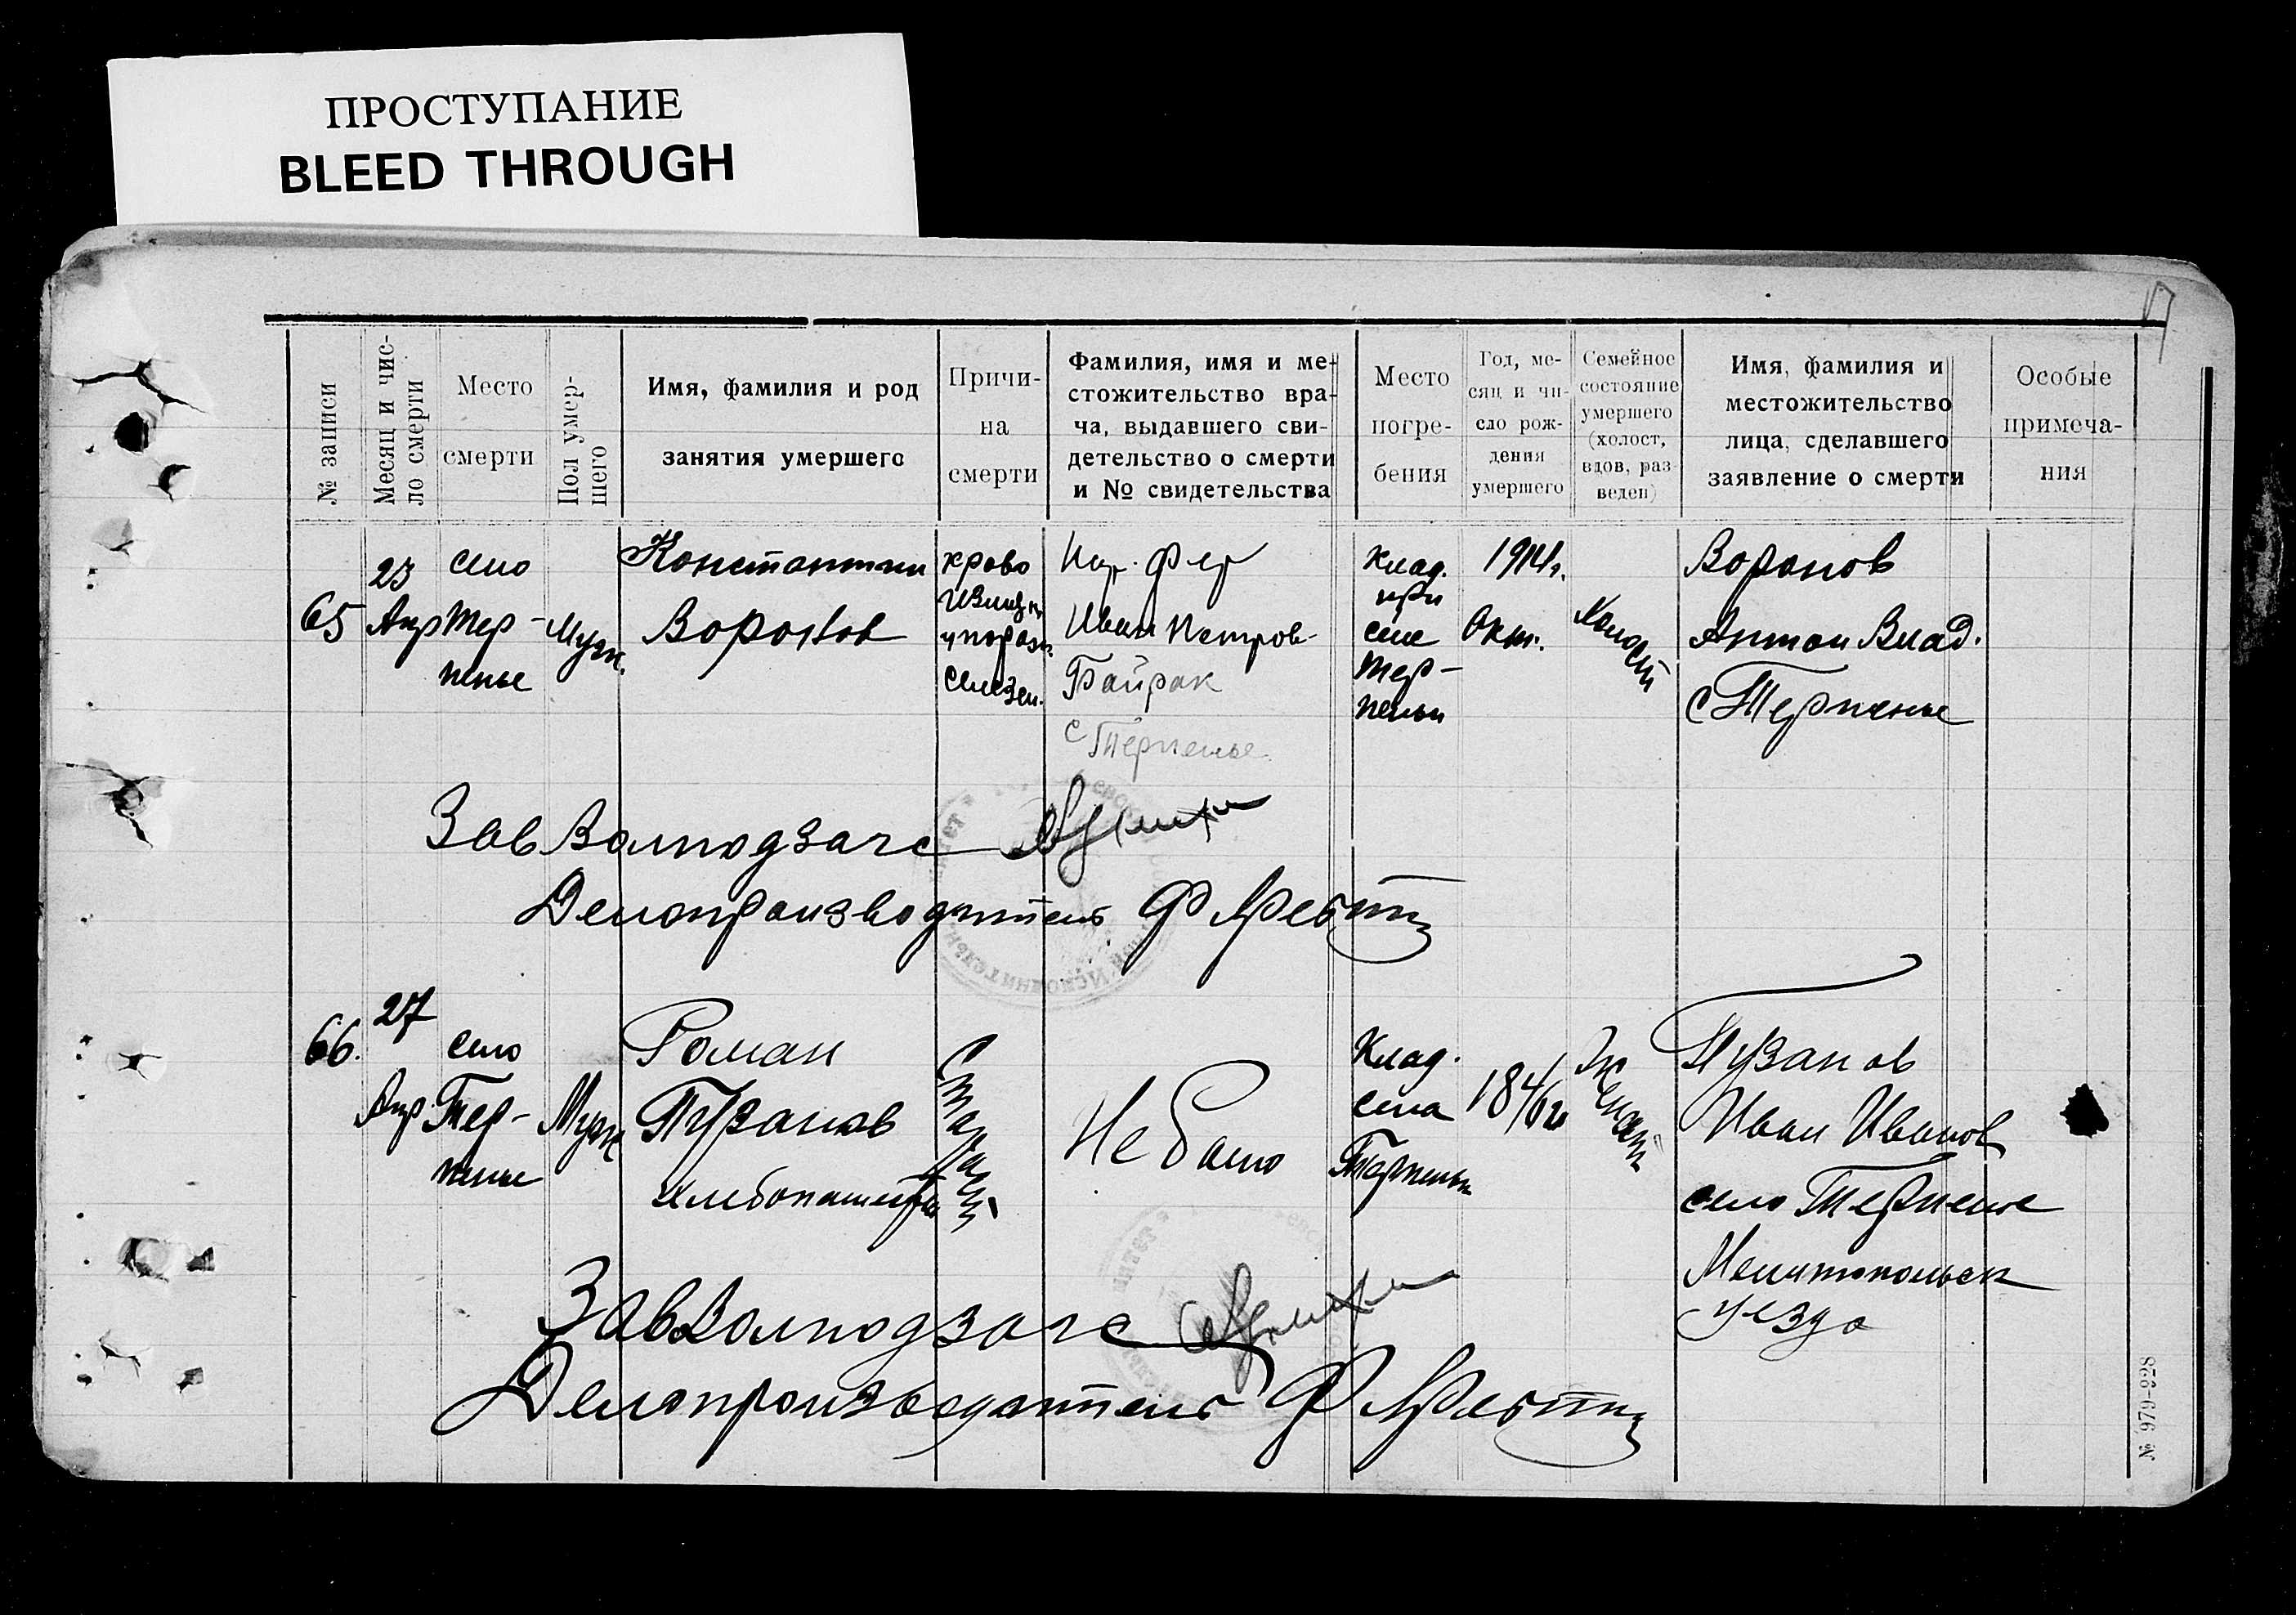 ПРОСТУПАНИЕ
BLEED THROUGH
№ записи
Месяц и чис-
ло смерти
Место
смерти
Пол умер-
шего
Имя, фамилия и род
занятия умершего
Причи-
на
смерти
Фамилия, имя и ме-
стожительство вра-
ча, выдавшего сви-
детельство о смерти
и № свидетельства
Место
погре-
бения
Год, ме-
сяц и чи-
сло рож-
дения
умершего
Семейное
состояние
умершего
(холост,
вдов, раз-
веден)
Имя, фамилия и
местожительство
лица, сделавшего
заявление о смерти
Особые
примеча-
ния
65
23
Апр
село
Тер-
пенье
Муж.
Константин
Воронов
крово
селезен.
Фер
Иван Петров
Байрак
с Терпенье
Клад.
при
селе
Тер-
пеньи
1914г.
Окт.
Холост
Воронов
Антон Влад.
с Терпенье
Зав Волподзагс
Делопроизводитель Ф
66.
27
Апр.
село
Тер-
пенье
Муж
Роман
Пузанов
хлебопашец
Старость
Не было
Клад.
села
Терпенья
Женат
Пузанов
Иван Иванов
село Терпенье
Мелитопольск
уезда
Зав Волподзагс
Делопроизводитель Ф
№ 976-928